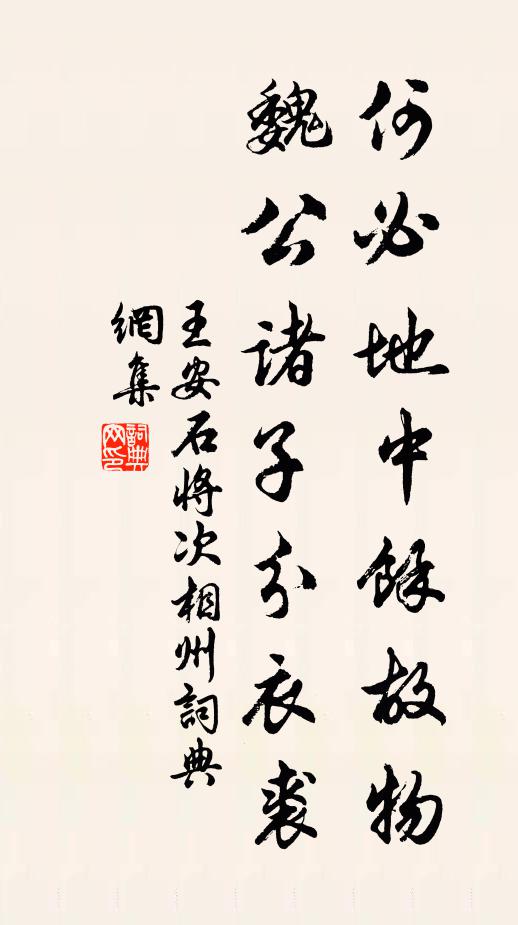 何必地中餘故物
魏公諸子分衣裘
王安石將次相州詞典
網集
詞典網印